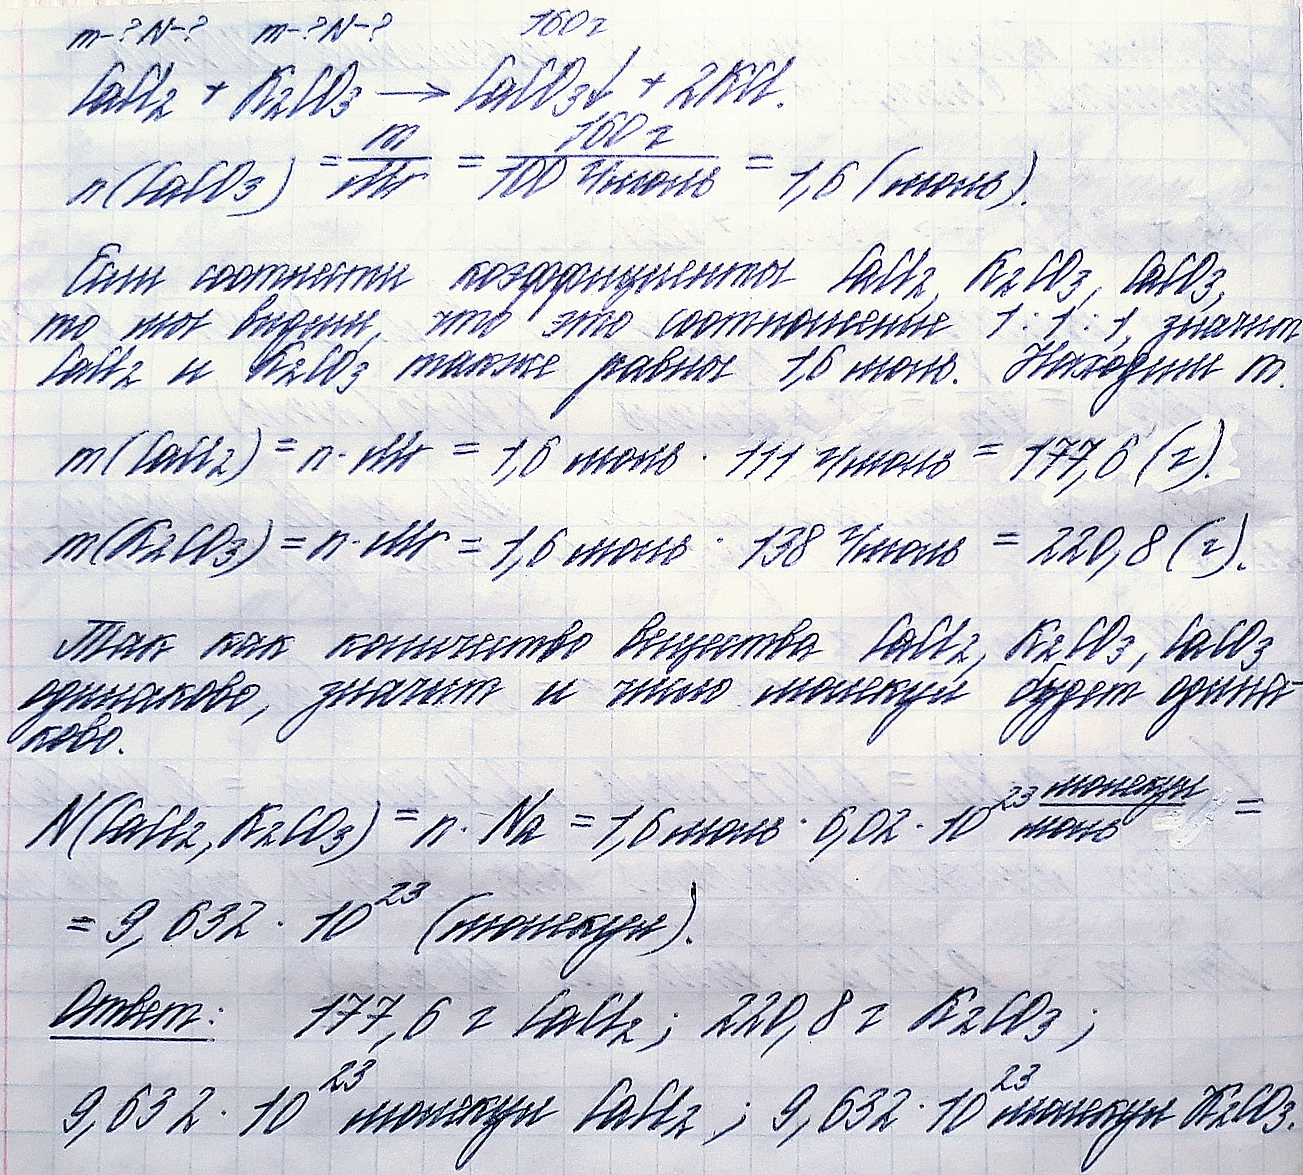 m-? N-? m-? N-? 160 г
CaCl₂ + K₂CO₃ → CaCO₃↓ + 2KCl.
n(CaCO₃) = m/Mr = 160 г/100 г/моль = 1,6 (моль).
Если соотнести коэффициенты CaCl₂, K₂CO₃, CaCO₃,
то мы видим, что это соотношение 1:1:1, значит
CaCl₂ и K₂CO₃ также равны 1,6 моль. Находим m.
m(CaCl₂) = n · Mr = 1,6 моль · 111 г/моль = 177,6 (г).
m(K₂CO₃) = n · Mr = 1,6 моль · 138 г/моль = 220,8 (г).
Так как количество вещества CaCl₂, K₂CO₃, CaCO₃
одинаково, значит и число молекул будет одина-
ково.
N(CaCl₂, K₂CO₃) = n · Na = 1,6 моль · 6,02 · 10²³ молекул/моль =
= 9,632 · 10²³ (молекул).
Ответ: 177,6 г CaCl₂; 220,8 г K₂CO₃;
9,632 · 10²³ молекул CaCl₂; 9,632 · 10²³ молекул K₂CO₃.